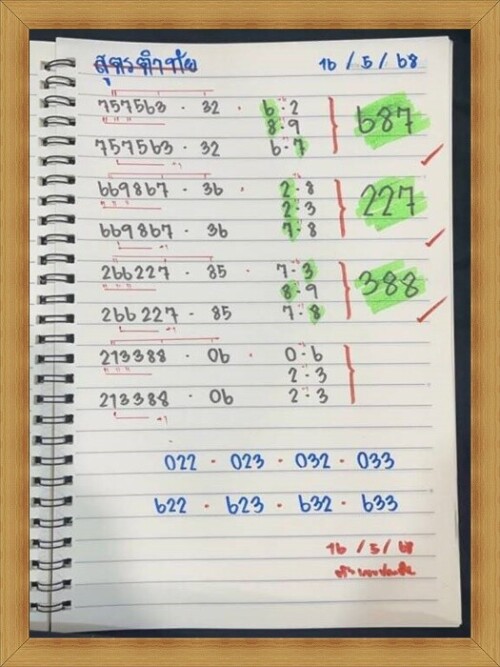 สูตรคำชัย 16 / 5 / 68
757563 · 32 · 6·2
8·9 687
757563 · 32 6·7
669867 · 36 · 2·8
2·3 227
669867 · 36 7·8
266227 · 85 · 7·3
8·9 388
266227 · 85 7·8
213388 · 06 · 0·6
2·3
213388 · 06 2·3
022 · 023 · 032 · 033
622 · 623 · 632 · 633
16 / 5 / 68